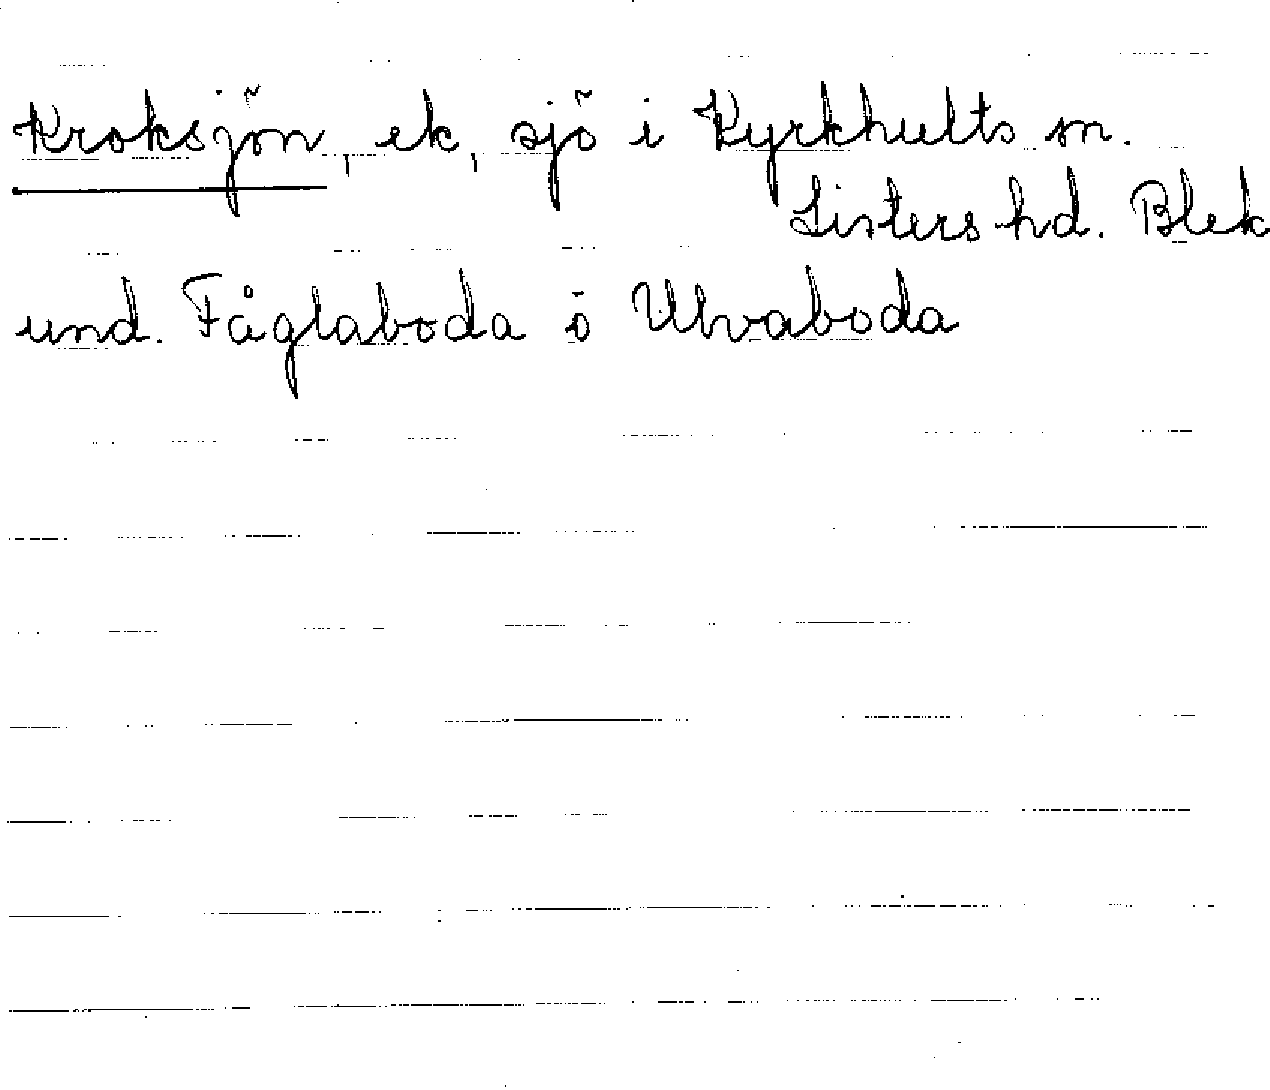 Kroksjön, ek, sjö i Kyrkhults sn.
Listers hd. Blek
und. Fåglaboda o Ulvaboda